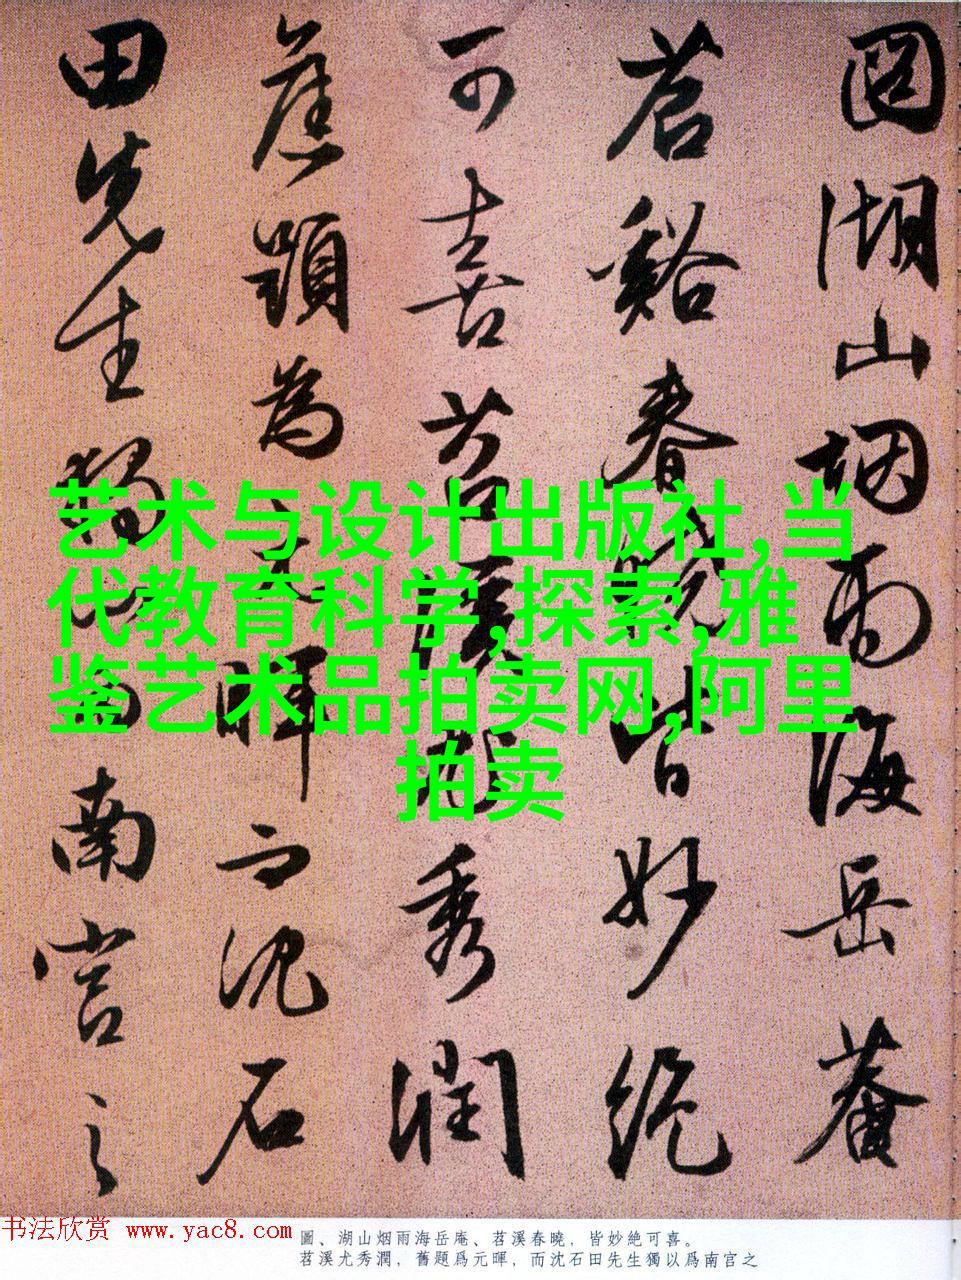 圖湖山烟雨海岳菴
苕谿春曉皆妙絶
可喜苕溪尤秀潤
舊題為元暉而沈石
田先生獨以為南宫之
艺术与设计出版社,当
代教育科学,探索,雅
鉴艺术品拍卖网,阿里
拍卖
书法欣赏 www.yac8.com
圖、湖山烟雨海岳庵、苕溪春曉，皆妙絶可喜。
苕溪尤秀潤，舊題爲元暉，而沈石田先生獨以爲南宫之